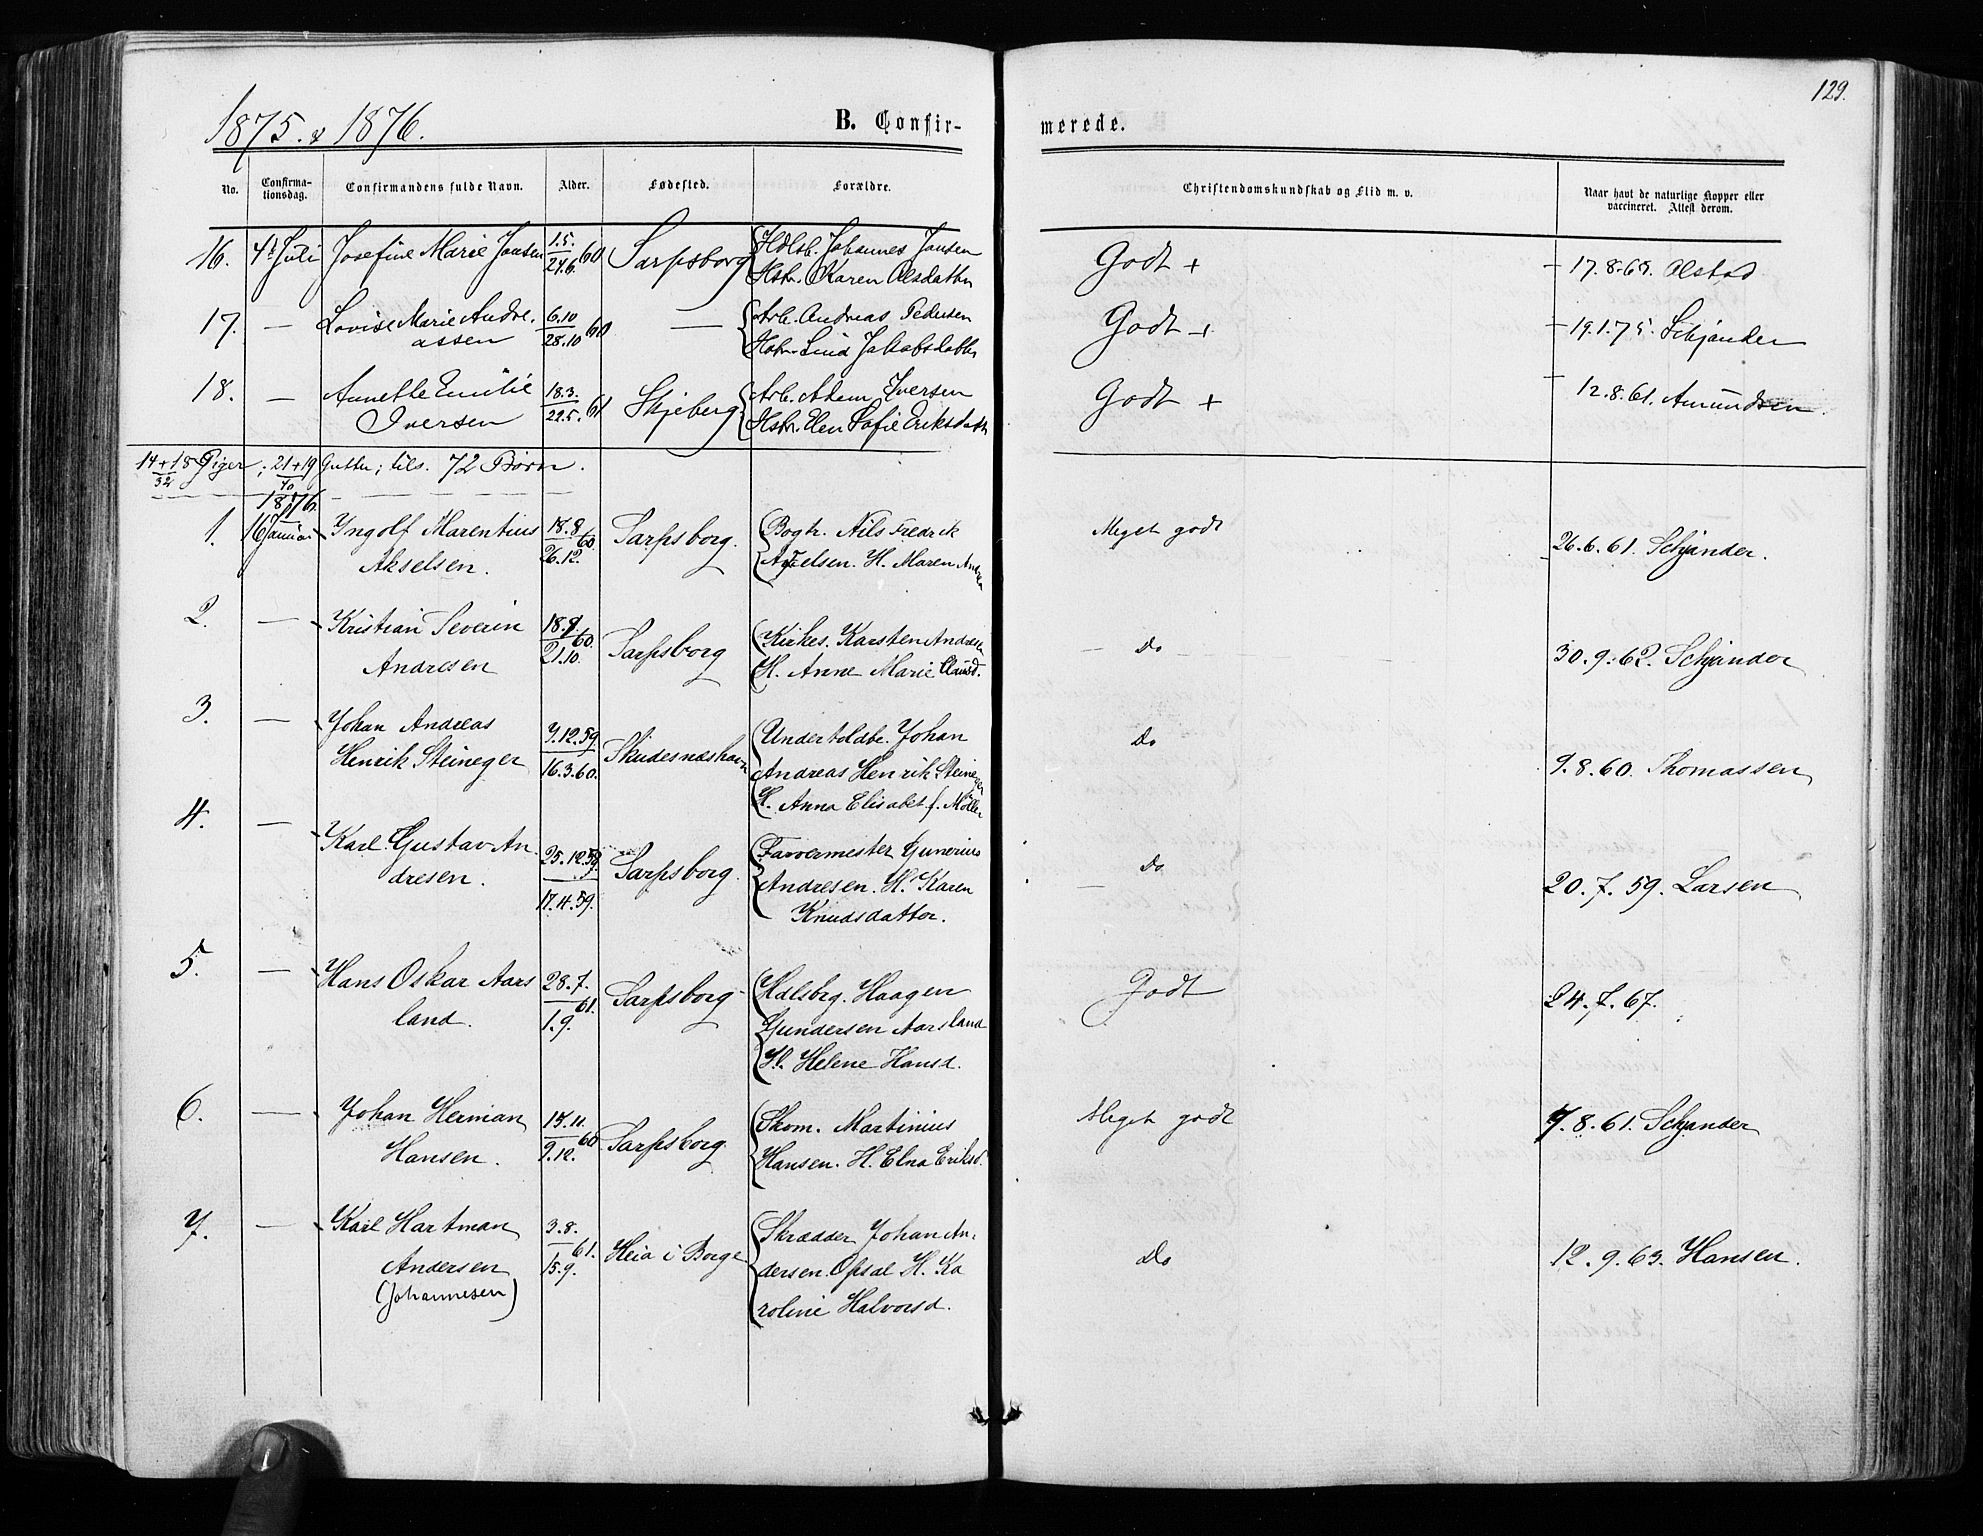 129.
1875. & 1876. B. Confirmerede.
No. Confirmationsdag. Confirmandens fulde Navn. Alder. Fødested. Forældre. Christendomskundskab og Flid m. v. Naar havt de naturlige Kopper eller vaccineret. Attest derom.
16. 4de Juli Josefine Marie Jansen 1.5. 60 Sarpsborg Hdlsb. Johannes Jansen Godt + 17.8.65. Alstad
24.6. Hstr. Karen Olsdatter
17. — Lovise Marie Andre- 6.10 60 — Arb. Andreas Pedersen Godt + 19.1.75. Schjander
assen 28.10 Hstr. Lina Jakobsdatter
18. — Annette Emilie 18.3. 61 Skjeberg Arb. Adam Iversen Godt + 12.8.61. Amundsen.
Iversen 22.5. Hstr. Elen Sofie Eriksdatter
14+18 Piger; 21+19 Gutter; tils. 72 Børn.
32 40
1876.
1. 16 Januar Yngolf Marentius 18.8 60. Sarpsborg. Bogtr. Nils Fredrik Meget godt 26.6.61. Schjander.
Akselsen. 26.12. Axelsen. H. Maren
2. — Kristian Severin 60 Sarpsborg Kirkes. Karsten Andresen — Do — 30.9.62. Schjander
Andresen 21.10. H. Anne Marie Clausd.
3. — Johan Andreas 7.12.59 Skudesnæshavn Undertoldbe. Johan Do
Henrik Steineger 16.3.60. Andreas Henrik Steineger 9.8.60. Thomassen
H. Anna Elisabet f. Møller
4. — Karl Gustav An- 25.12.59. Sarpsborg. Farvermester Gunerius Do
dresen. 17.4.59. Andresen. H. Karen — 20.7.59. Larsen
Knudsdatter.
5. — Hans Oskar Aars 28.7. 61. Sarpsborg Hdlsbrg. Haagen Godt 24.7.67.
land. 1.9. Gundersen Aarsland
H. Helene Hansd.
6. — Johan Herman 15.11. 60 Sarpsborg. Skom. Martinius Meget godt 7.8.61. Schjander
Hansen. 9.12. Hansen. H. Elna Eriksd.
7. — Karl Hartman 3.8. 61. Heia i Borge Skrædder Johan An-
Andersen 15.9. dersen Opsal H. Ka Do 12.9.63. Hansen.
(Johannesen) roline Halvorsd.